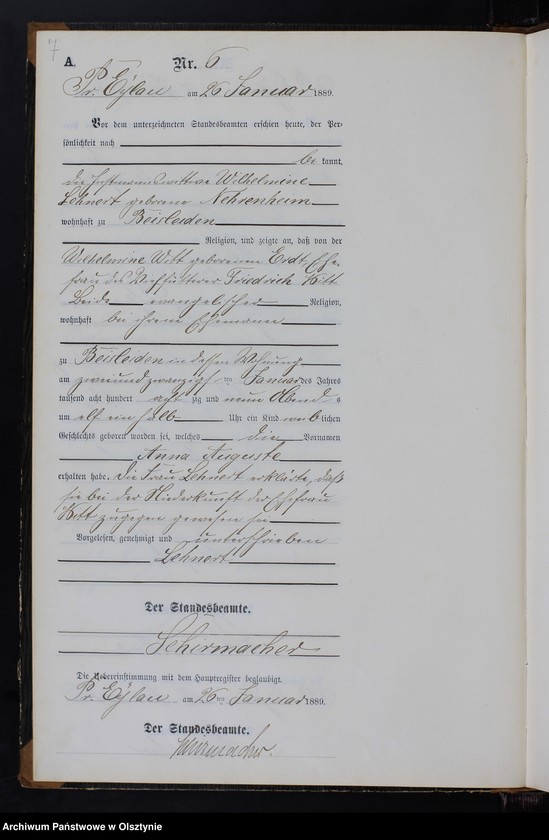 7
A.
Nr. 6
Pr. Eylau am 26 Januar 1889.
Vor dem unterzeichneten Standesbeamten erschien heute, der Per-
sönlichkeit nach
be kannt,
die Wilhelmine
Lehnert geborene Nehrenheim
wohnhaft zu Beisleiden
Religion, und zeigte an, daß von der
Wilhelmine Witt geborenen Erdt, Ehe-
frau des Friedrich Witt
Beide evangelischer Religion,
wohnhaft bei ihrem Ehemann
zu Beisleiden in dessen Wohnung
am zweiundzwanzigsten Januar des Jahres
tausend acht hundert acht zig und neun Abends
um elf ein halb Uhr ein Kind weiblichen
Geschlechts geboren worden sei, welches die Vornamen
Anna Auguste
erhalten habe. Die Frau Lehnert erklärte, daß
sie bei der Niederkunft der Ehefrau
Witt zugegen gewesen sei
Vorgelesen, genehmigt und unterschrieben
Lehnert
Der Standesbeamte.
Schirmacher
Die Uebereinstimmung mit dem Hauptregister beglaubigt.
Pr. Eylau am 26ten Januar 1889.
Der Standesbeamte.
Schirmacher.
Archiwum Państwowe w Olsztynie